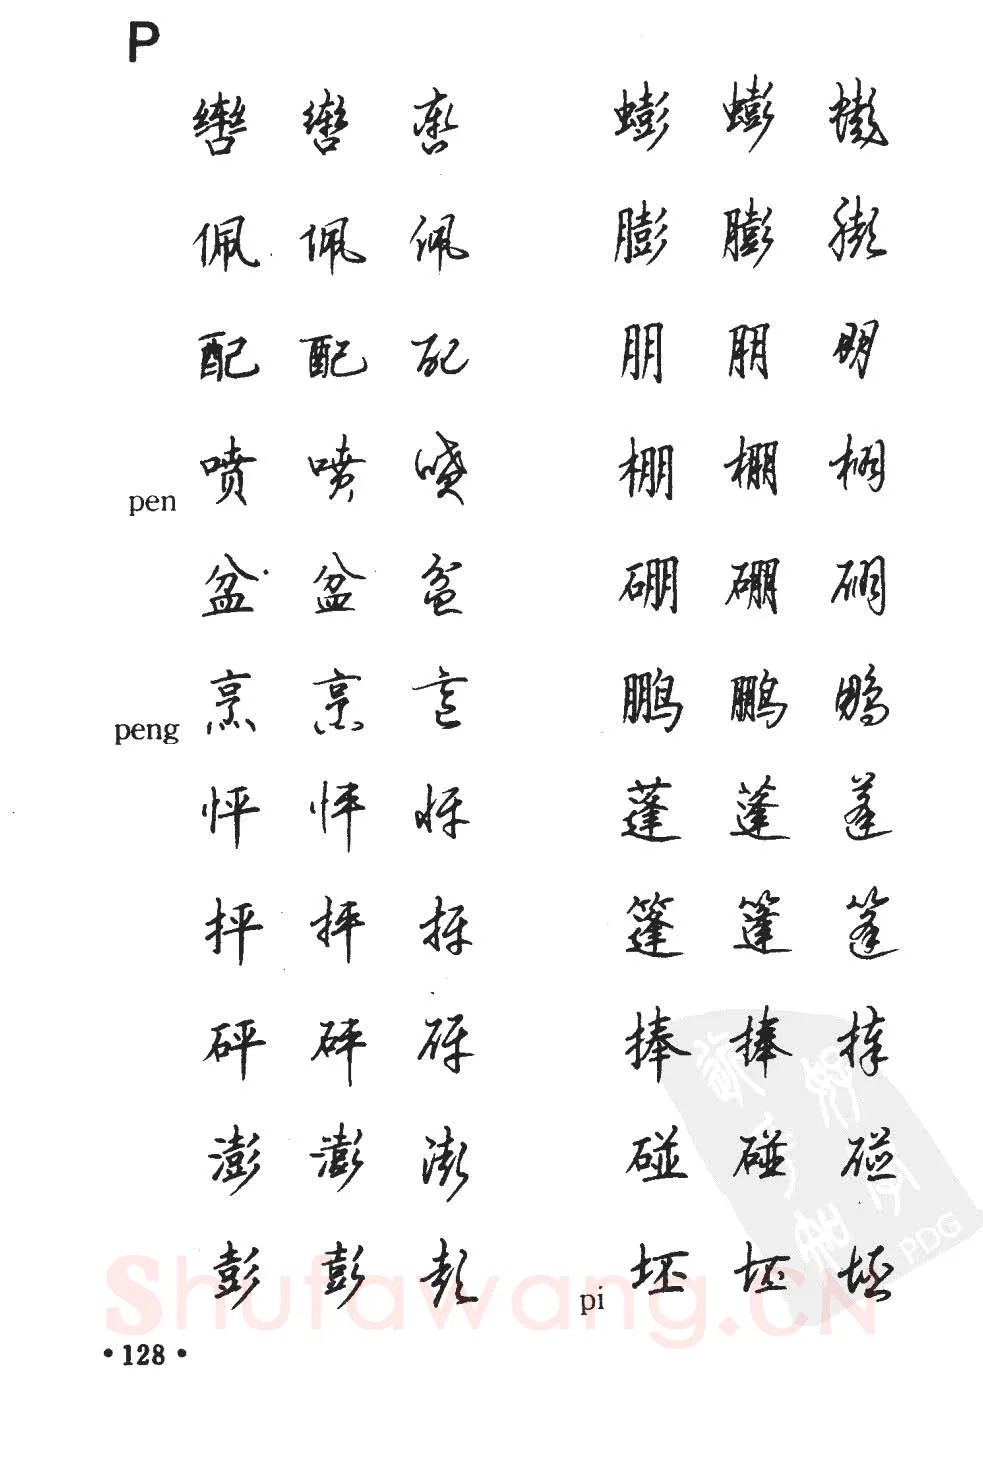 P
辔 辔 辔 蟛 蟛 蟛
佩 佩 佩 膨 膨 膨
配 配 配 朋 朋 朋
pen 喷 喷 喷 棚 棚 棚
盆 盆 盆 硼 硼 硼
peng 烹 烹 烹 鹏 鹏 鹏
怦 怦 怦 蓬 蓬 蓬
抨 抨 抨 篷 篷 篷
砰 砰 砰 捧 捧 捧
澎 澎 澎 碰 碰 碰
彭 彭 彭 pi 坯 坯 坯
Shufawang.CN
PDG
·128·